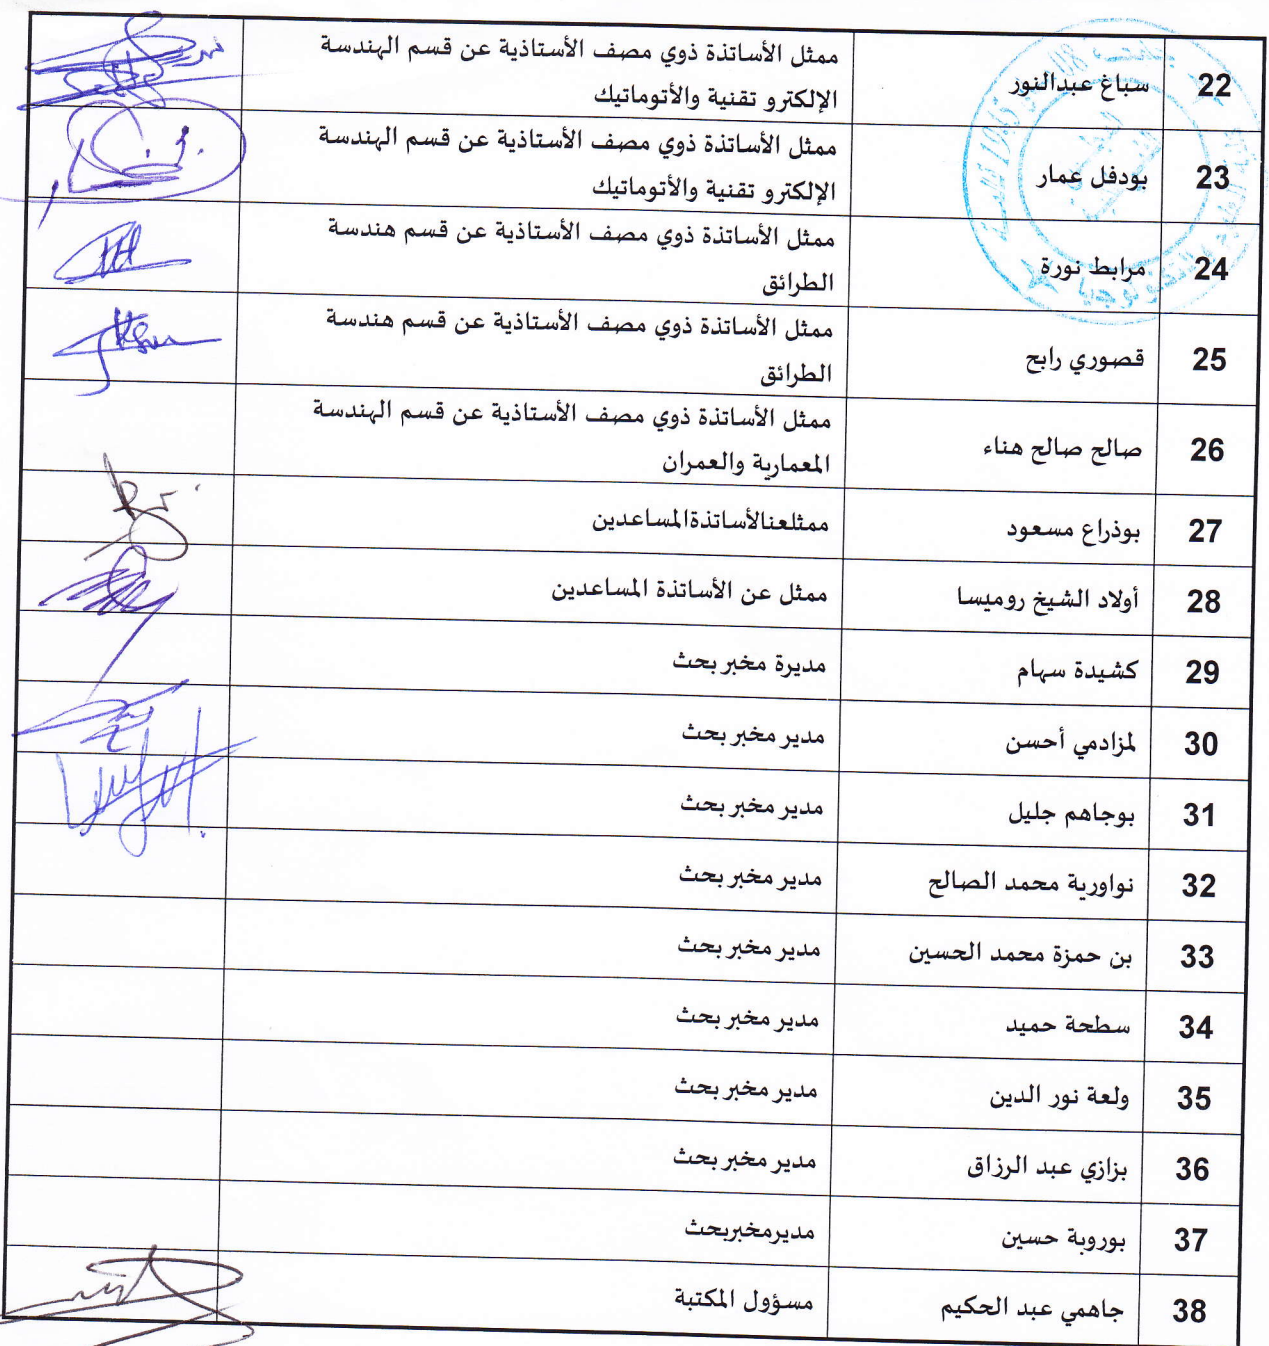 22 سباغ عبدالنور ممثل الأساتذة ذوي مصف الأستاذية عن قسم الهندسة
الإلكترو تقنية والأتوماتيك
23 بودفل عمار ممثل الأساتذة ذوي مصف الأستاذية عن قسم الهندسة
الإلكترو تقنية والأتوماتيك
24 مرابط نورة ممثل الأساتذة ذوي مصف الأستاذية عن قسم هندسة
الطرائق
25 قصوري رابح ممثل الأساتذة ذوي مصف الأستاذية عن قسم هندسة
الطرائق
26 صالح صالح هناء ممثل الأساتذة ذوي مصف الأستاذية عن قسم الهندسة
المعمارية والعمران
27 بوذراع مسعود ممثلعنالأساتذةالمساعدين
28 أولاد الشيخ روميسا ممثل عن الأساتذة المساعدين
29 كشيدة سهام مديرة مخبر بحث
30 لمزادمي أحسن مدير مخبر بحث
31 بوجاهم جليل مدير مخبر بحث
32 نواورية محمد الصالح مدير مخبر بحث
33 بن حمزة محمد الحسين مدير مخبر بحث
34 سطحة حميد مدير مخبر بحث
35 ولعة نور الدين مدير مخبر بحث
36 بزازي عبد الرزاق مدير مخبر بحث
37 بوروبة حسين مديرمخبربحث
38 جاهمي عبد الحكيم مسؤول المكتبة